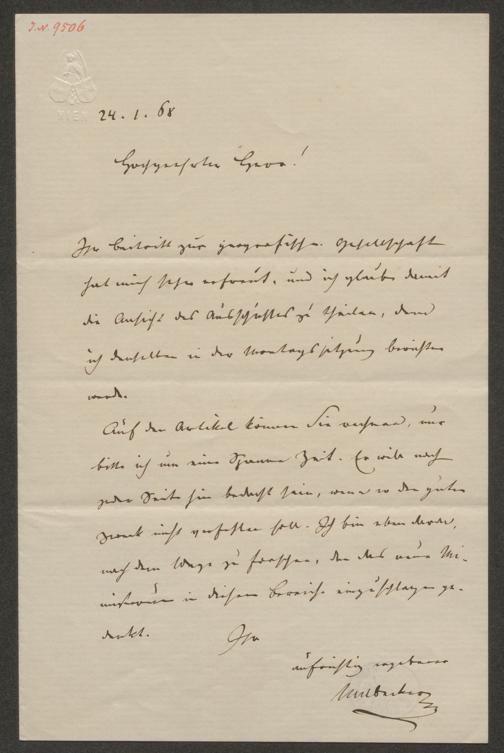 J.N. 9506
WIEN
24.1.68
Hochgeehrter Herr!
Ihr Beitritt zur geografischen Gesellschaft
hat mich sehr erfreut, und ich glaube damit
die Ansicht des Ausschusses zu theilen, dem
ich denselben in der Montagssitzung berichten
werde.
Auf den Artikel können Sie rechnen, nur
bitte ich um eine Spanne Zeit. Er will nach
jeder Seite hin bedacht sein, wenn er den guten
Zweck nicht verfehlen soll. Ich bin eben daran,
nach dem Wege zu forschen, den das neue Mi-
nisterium in diesem Bereiche einzuschlagen ge-
denkt.
Ihr
aufrichtig ergebener